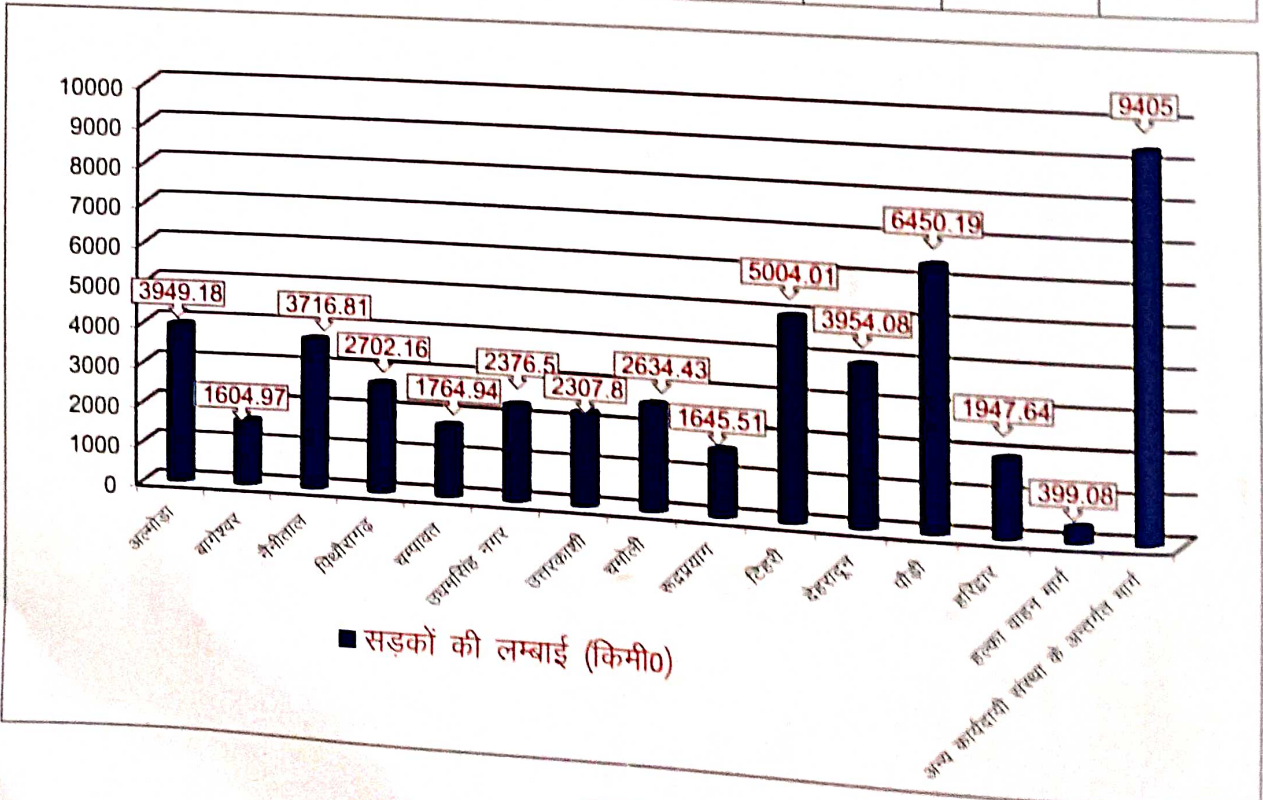 10000
9000
8000
7000
6000
5000
4000
3000
2000
1000
0
3949.18
1604.97
3716.81
2702.16
1764.94
2376.5
2307.8
2634.43
1645.51
5004.01
3954.08
6450.19
1947.64
399.08
9405
अल्मोड़ा
बागेश्वर
नैनीताल
पिथौरागढ़
चम्पावत
उधमसिंह नगर
उत्तरकाशी
चमोली
रूद्रप्रयाग
टिहरी
देहरादून
पौड़ी
हरिद्वार
हल्का वाहन मार्ग
अन्य कार्यदायी संस्था के अन्तर्गत मार्ग
सड़कों की लम्बाई (किमी0)